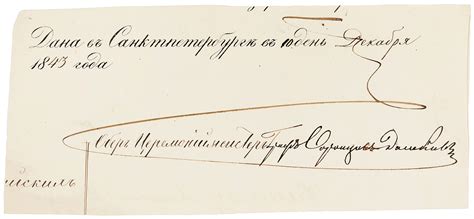 Дана въ Санктпетербургѣ въ 10 день Декабря
1843 года
Оберъ Церемонiймейстеръ Графъ Воронцовъ Дашковъ
йскихъ